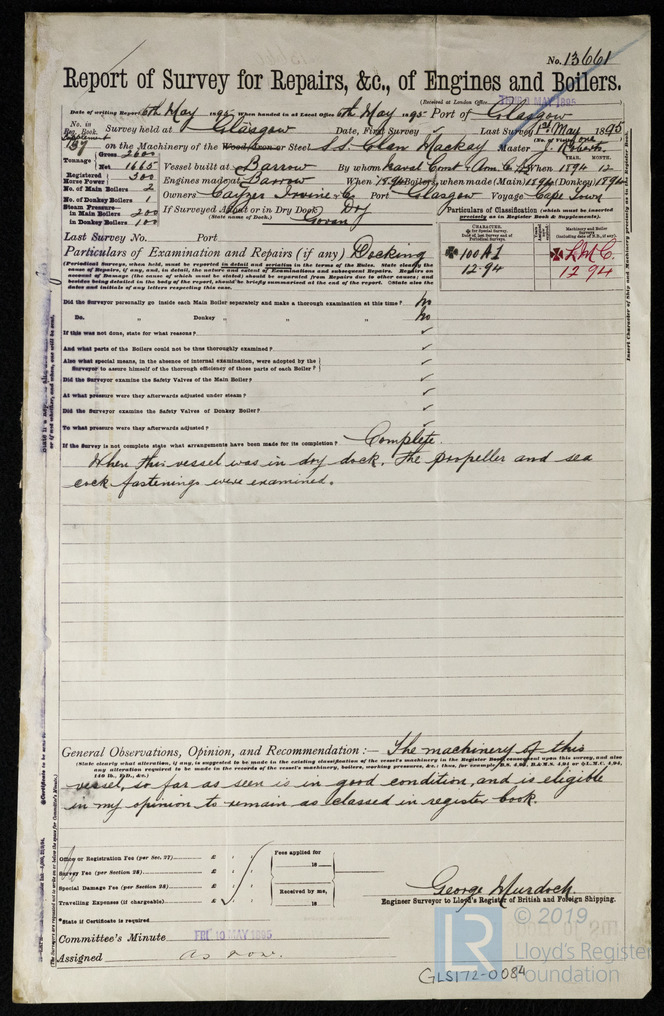 No. 13661
Report of Survey for Repairs, &c., of Engines and Boilers.
(Received at London Office MAY 1895)
Date of writing Report 6th May 1895 When handed in at Local Office 6th May 1895 Port of Glasgow
No. in Reg. Book. Survey held at Glasgow Date, First Survey Last Survey 1st May 1895
(No. of Visits one)
137 on the Machinery of the Wood, Iron or Steel S.S. Clan Mackay Master J. Roberts
Tonnage Gross 2600 Net 1665 Vessel built at Barrow By whom Naval Const & Arm. Co. Ld When 1894 12
YEAR. MONTH.
Registered Horse Power 300 Engines made at Barrow When 1894 Boilers, when made (Main) 1894 (Donkey) 1894
No. of Main Boilers 2 Owners Cayzer Irvine & Co Port Glasgow Voyage Cape Town
No. of Donkey Boilers 1
Steam Pressure in Main Boilers 200 If Surveyed Afloat or in Dry Dock Dry
in Donkey Boilers 100 (State name of Dock.) Govan
Particulars of Classification (which must be inserted precisely as in Register Book & Supplements).
Last Survey No. Port
CHARACTER.
Machinery and Boiler Surveys
100 A1 12-94
L.M.C. 12 94
Particulars of Examination and Repairs (if any) Docking
(Periodical Surveys, when held, must be reported in detail and seriatim in the terms of the Rules. State clearly the cause of Repairs, if any, and, in detail, the nature and extent of Examinations and subsequent Repairs. Repairs on account of Damage (the cause of which must be stated) should be separated from Repairs due to other causes; and besides being detailed in the body of the report, should be briefly summarised at the end of the report. State also the dates and initials of any letters respecting this case.
Did the Surveyor personally go inside each Main Boiler separately and make a thorough examination at this time? no
Do. " Donkey " " " no
If this was not done, state for what reasons?
And what parts of the Boilers could not be thus thoroughly examined?
Also what special means, in the absence of internal examination, were adopted by the Surveyor to assure himself of the thorough efficiency of those parts of each Boiler?
Did the Surveyor examine the Safety Valves of the Main Boiler?
At what pressure were they afterwards adjusted under steam?
Did the Surveyor examine the Safety Valves of Donkey Boiler?
To what pressure were they afterwards adjusted?
If the Survey is not complete state what arrangements have been made for its completion? Complete.
When this vessel was in dry dock. The propeller and sea
cock fastenings were examined.
General Observations, Opinion, and Recommendation :— The machinery of this
(State clearly what alteration, if any, is suggested to be made in the existing classification of the vessel's machinery in the Register Book consequent upon this survey, and also any alteration required to be made in the records of the vessel's machinery, boilers, working pressures, &c.; thus, for example, B.S. 4,94, B.&M.S. 4,94 or L.M.C. 4,94, 140 lb., F.D., &c.)
vessel, so far as seen is in good condition, and is eligible
in my opinion to remain as classed in register book.
Office or Registration Fee (per Sec. 27) £ : :
Survey Fee (per Section 28) £ : :
Special Damage Fee (per Section 28) £ : :
Travelling Expenses (if chargeable) £ : :
Fees applied for
18
Received by me,
18
George Murdoch.
Engineer Surveyor to Lloyd's Register of British and Foreign Shipping.
*State if Certificate is required
Committee's Minute FRI 10 MAY 1895
Assigned as now.
LR
© 2019
Lloyd's Register
Foundation
GLS172-0084